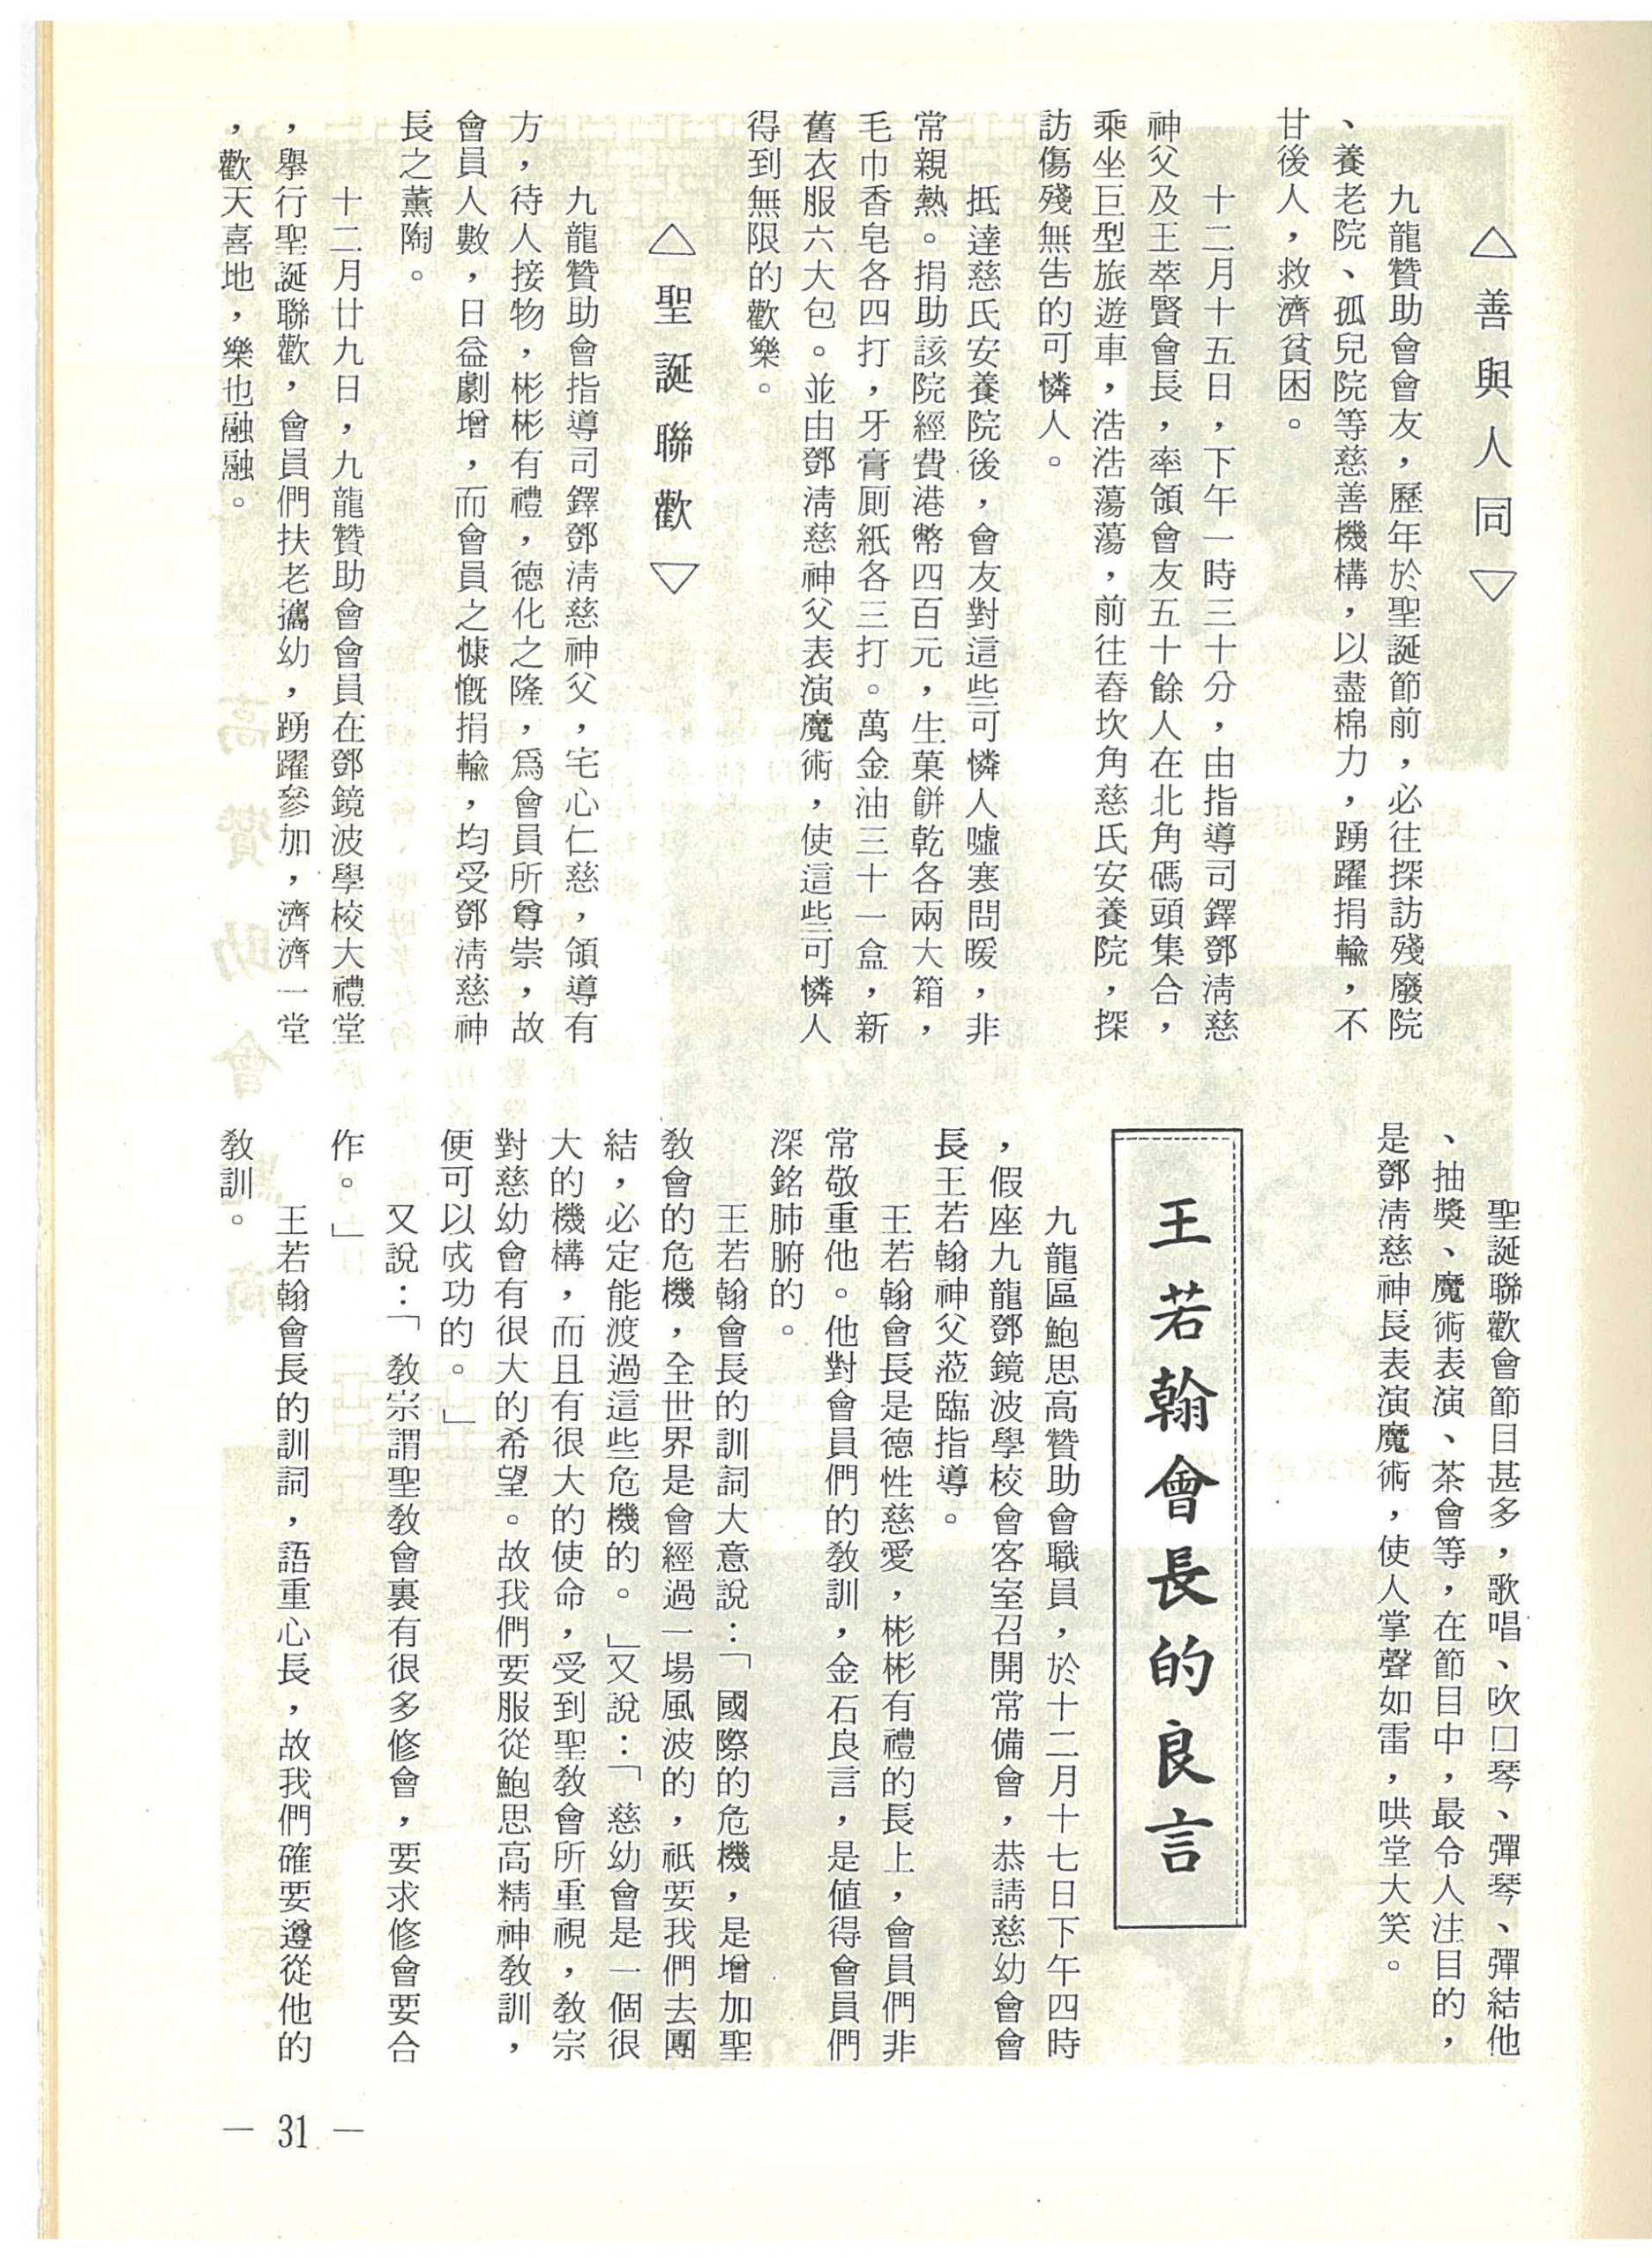 △善與人同▽
九龍贊助會會友，歷年於聖誕節前，必往探訪殘廢院
、養老院、孤兒院等慈善機構，以盡棉力，踴躍捐輸，不
甘後人，救濟貧困。
十二月十五日，下午一時三十分，由指導司鐸鄧淸慈
神父及王萃賢會長，率領會友五十餘人在北角碼頭集合，
乘坐巨型旅遊車，浩浩蕩蕩，前往舂坎角慈氏安養院，探
訪傷殘無告的可憐人。
抵達慈氏安養院後，會友對這些可憐人噓寒問暖，非
常親熱。捐助該院經費港幣四百元，生菓餅乾各兩大箱，
毛巾香皂各四打，牙膏厠紙各三打。萬金油三十一盒，新
舊衣服六大包。並由鄧淸慈神父表演魔術，使這些可憐人
得到無限的歡樂。
△聖誕聯歡▽
九龍贊助會指導司鐸鄧淸慈神父，宅心仁慈，領導有
方，待人接物，彬彬有禮，德化之隆，爲會員所尊崇，故
會員人數，日益劇增，而會員之慷慨捐輸，均受鄧淸慈神
長之薰陶。
十二月廿九日，九龍贊助會會員在鄧鏡波學校大禮堂
，舉行聖誕聯歡，會員們扶老攜幼，踴躍參加，濟濟一堂
，歡天喜地，樂也融融。
聖誕聯歡會節目甚多，歌唱、吹口琴、彈琴、彈結他
、抽獎、魔術表演、茶會等，在節目中，最令人注目的，
是鄧淸慈神長表演魔術，使人掌聲如雷，哄堂大笑。
王若翰會長的良言
九龍區鮑思高贊助會職員，於十二月十七日下午四時
，假座九龍鄧鏡波學校會客室召開常備會，恭請慈幼會會
長王若翰神父蒞臨指導。
王若翰會長是德性慈愛，彬彬有禮的長上，會員們非
常敬重他。他對會員們的敎訓，金石良言，是值得會員們
深銘肺腑的。
王若翰會長的訓詞大意說：「國際的危機，是增加聖
敎會的危機，全世界是會經過一場風波的，祇要我們去團
結，必定能渡過這些危機的。」又說：「慈幼會是一個很
大的機構，而且有很大的使命，受到聖敎會所重視，敎宗
對慈幼會有很大的希望。故我們要服從鮑思高精神敎訓，
便可以成功的。」
又說：「敎宗謂聖敎會裏有很多修會，要求修會要合
作。」
王若翰會長的訓詞，語重心長，故我們確要遵從他的
敎訓。
— 31 —